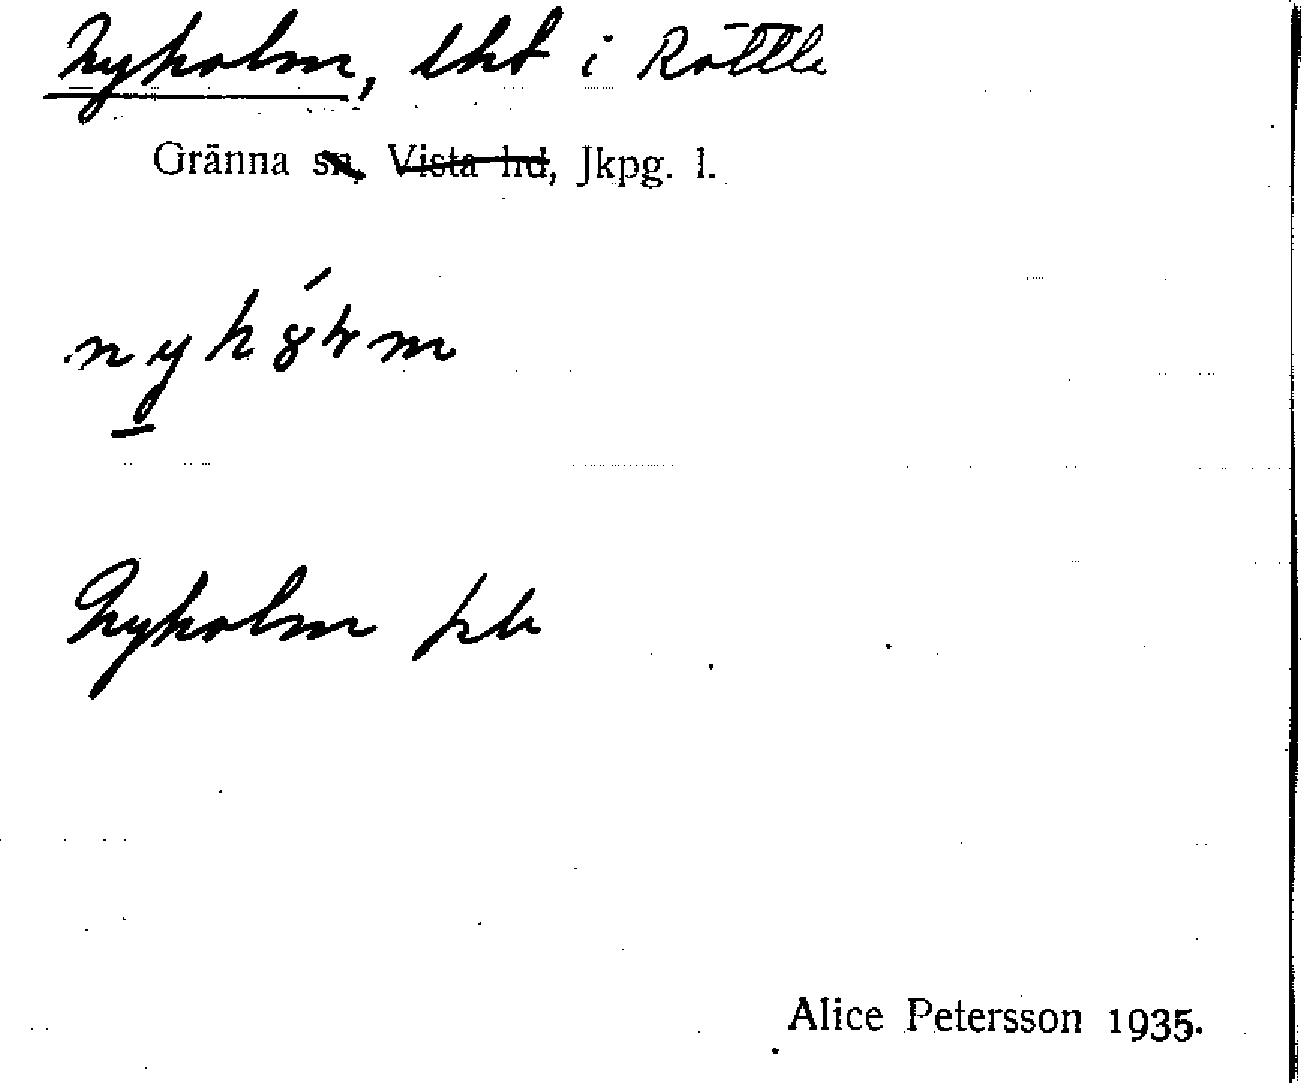 Nyholm, lht i Röttle
Gränna sn, Vista hd, Jkpg. l.
Nyholm jrb
Alice Petersson 1935.